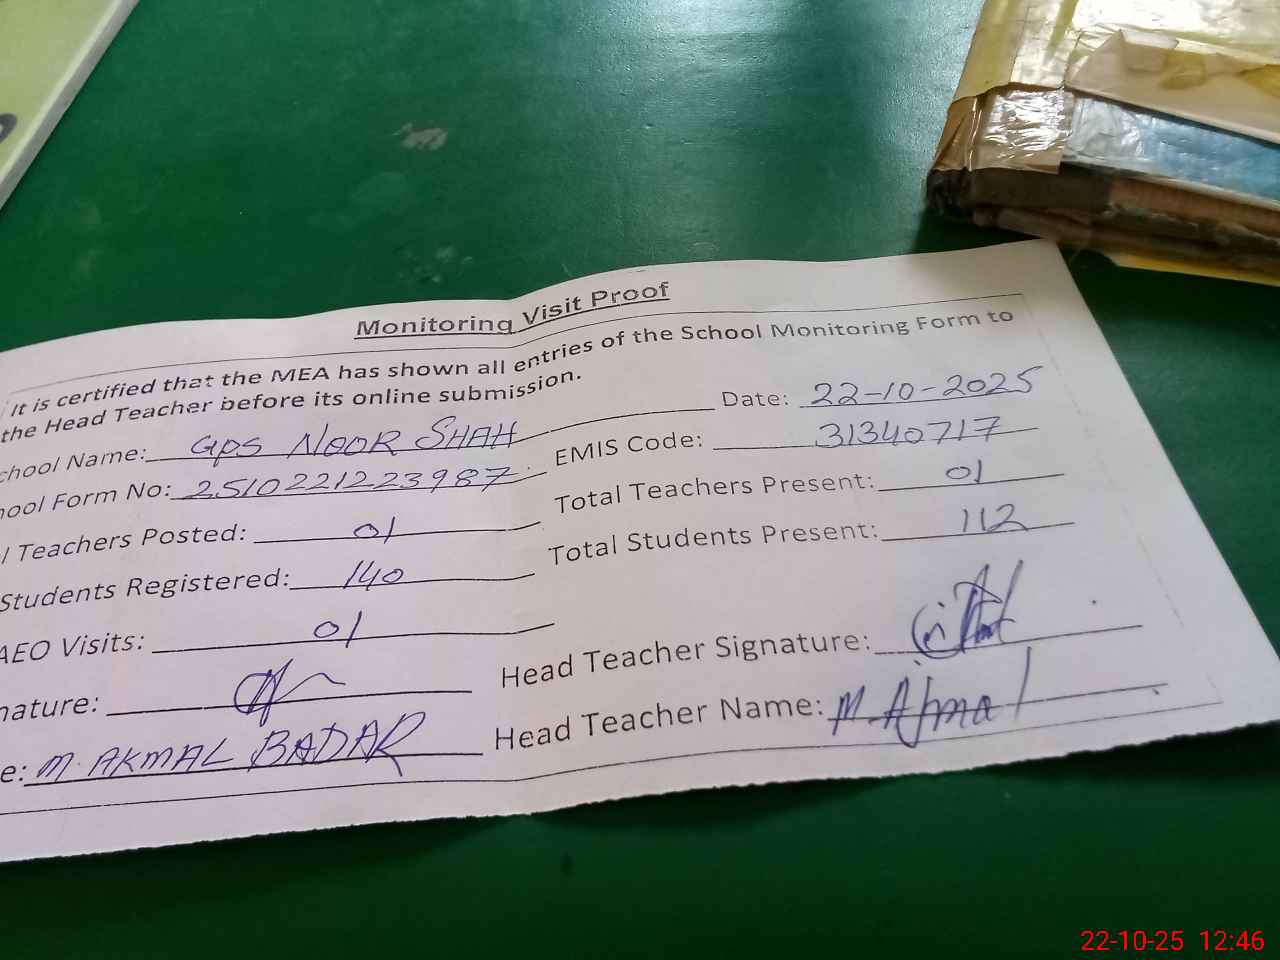 Monitoring Visit Proof
It is certified that the MEA has shown all entries of the School Monitoring Form to
the Head Teacher before its online submission.
Date: 22-10-2025
chool Name: GPS NOOR SHAH
EMIS Code: 31340717
ool Form No: 2510221223987
Total Teachers Present: 01
l Teachers Posted: 01
Total Students Present: 112
Students Registered: 140
AEO Visits: 01
Head Teacher Signature:
nature:
Head Teacher Name: M Ajmal
e: M. AKMAL BADAR
22-10-25 12:46